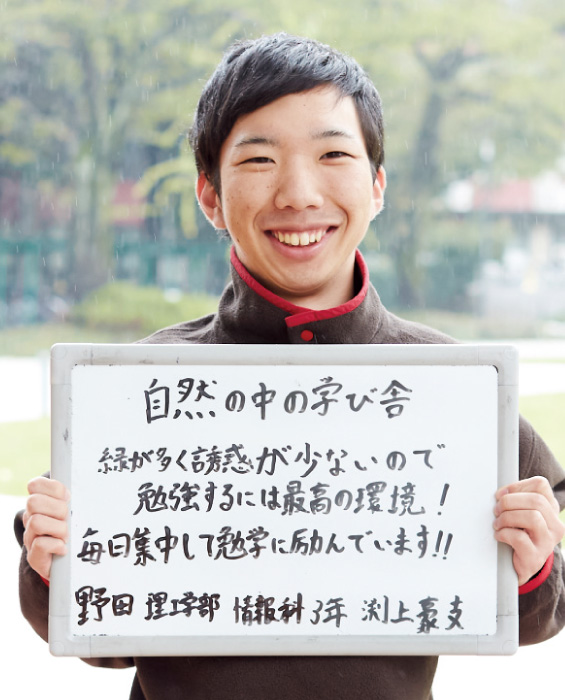 自然の中の学び舎
緑が多く誘惑が少ないので
勉強するには最高の環境！
毎日集中して勉学に励んでいます!!
野田 理工学部 情報科 3年 渕上豪支